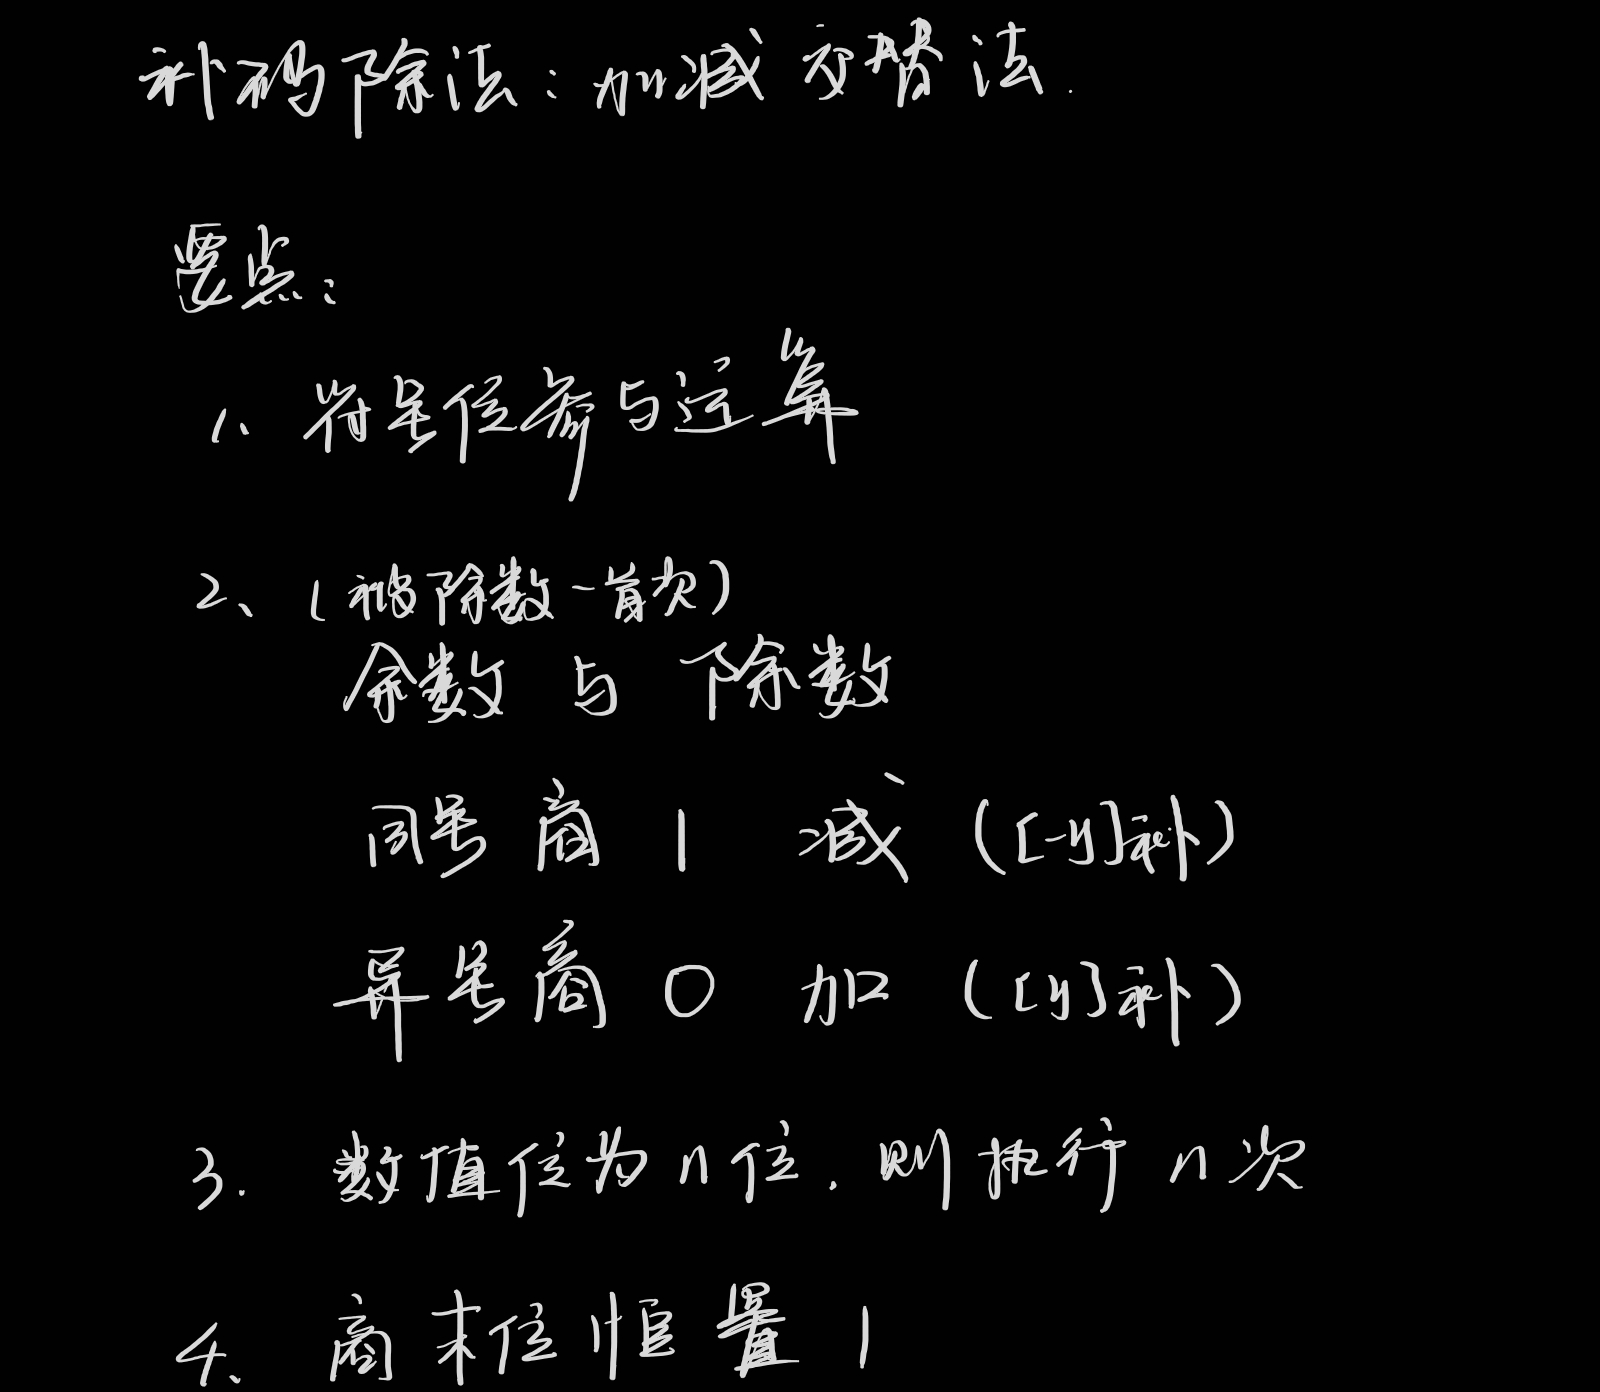 补码除法:加减交替法.
要点:
1、符号位参与运算
2、(被除数-首次)
余数与除数
同号商1 减([-y]补)
异号商0 加([y]补)
3.数值位为n位.则执行n次
4、商末位恒置1